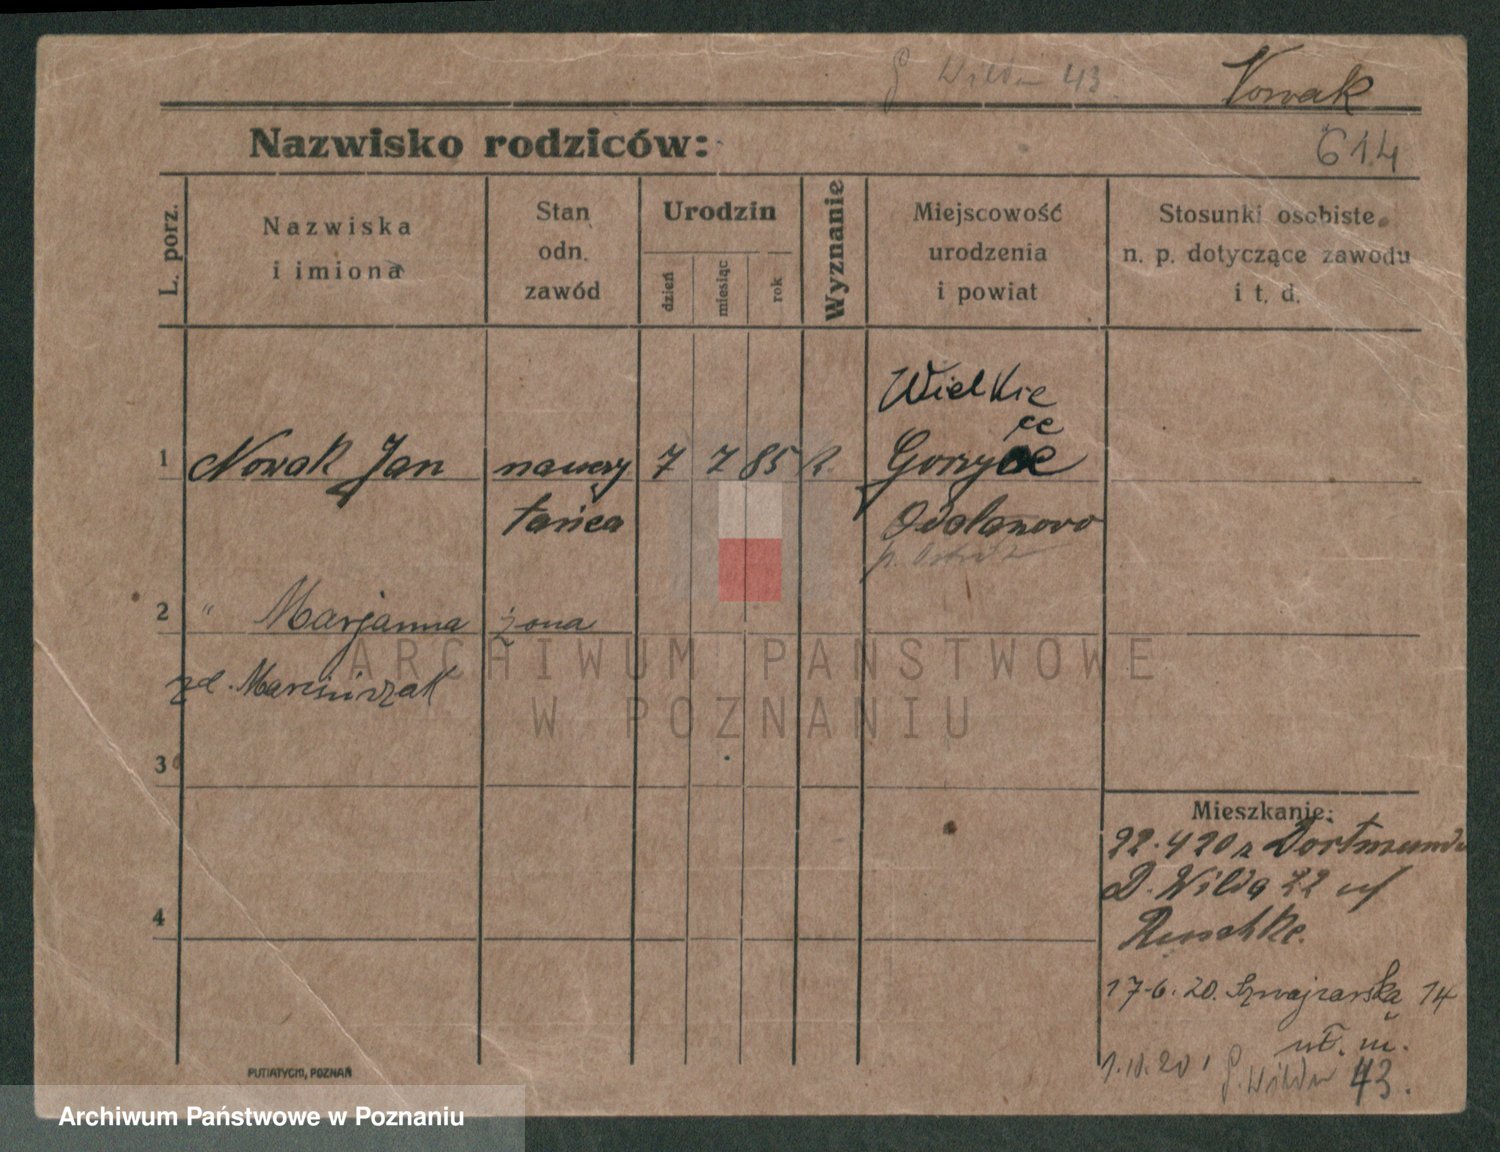 G. Wilda 43.
Nowak
Nazwisko rodziców:
614
L. porz.
Nazwiska
i imiona
Stan
odn.
zawód
Urodzin
dzień
miesiąc
rok
Wyznanie
Miejscowość
urodzenia
i powiat
Stosunki osobiste
n. p. dotyczące zawodu
i t. d.
Wielkie
ce
1 Nowak Jan nauczy 7 7 85 k. Gorzyce
tańca Odolanowo
2 " Marjanna żona
zd. Marciniczak
ARCHIWUM PAŃSTWOWE
W POZNANIU
3
Mieszkanie:
22.4 20 z Dortmundu
D. Wilda 22 u/
Ruschke.
4
17-6. 20. Szwajcarska 14
wł. m.
1.10.20 G. Wilda 43.
PUTIATYCKI, POZNAŃ
Archiwum Państwowe w Poznaniu